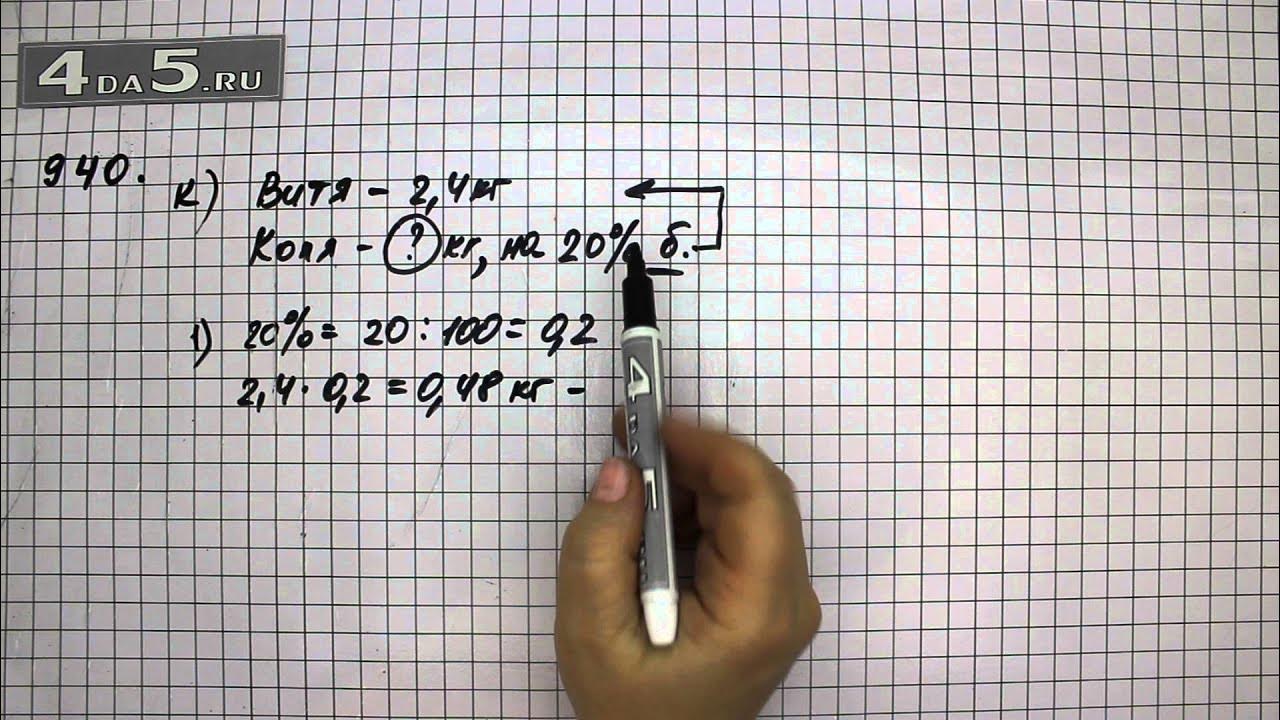 4DA5.RU
940.
к) Витя - 2,4 кг
Коля - ? кг, на 20% б.
1) 20% = 20 : 100 = 0,2
2,4 · 0,2 = 0,48 кг -